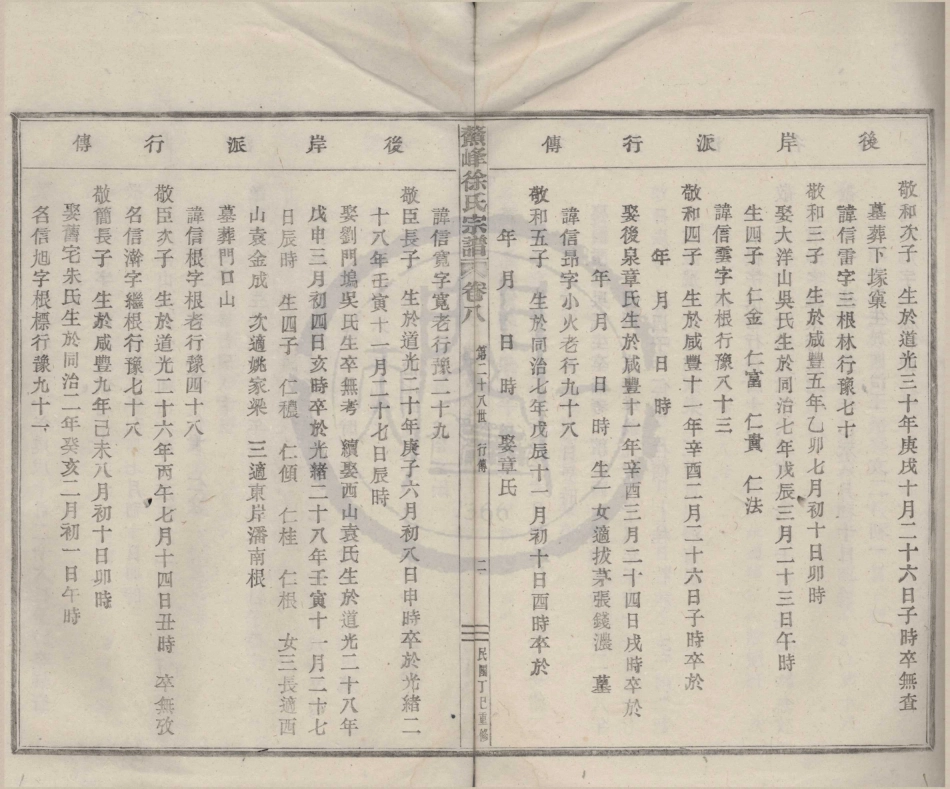 後岸派行傳
敬和次子 生於道光三十年庚戌十月二十六日子時卒無查
墓葬下塚窠
諱信雷字三根林行豫七十
敬和三子 生於咸豐五年乙卯七月初十日卯時
娶大洋山吳氏生於同治七年戊辰三月二十三日午時
生四子 仁金 仁富 仁貴 仁法
諱信雲字木根行豫八十三
敬和四子 生於咸豐十一年辛酉二月二十六日子時卒於
年 月 日 時
娶後泉章氏生於咸豐十一年辛酉三月二十四日戌時卒於
年 月 日 時 生一女適拔茅張錢濃 墓
諱信昂字小火老行九十八
敬和五子 生於同治七年戊辰十一月初十日酉時卒於
年 月 日 時 娶章氏
峰徐氏宗譜 卷八 第二十八世 行傳 二 民國丁巳重修
後岸派行傳
諱信寬字寬老行豫二十九
敬臣長子 生於道光二十年庚子六月初八日申時卒於光緒二
十八年壬寅十一月二十七日辰時
娶劉門塢吳氏生卒無考 續娶西山袁氏生於道光二十八年
戊申三月初四日亥時卒於光緒二十八年壬寅十一月二十七
日辰時 生四子 仁禮 仁傾 仁桂 仁根 女三長適西
山袁金成 次適姚家梁 三適東岸潘南根
墓葬門口山
諱信根字根老行豫四十八
敬臣次子 生於道光二十六年丙午七月十四日丑時 卒無攷
名信瀚字繼根行豫七十八
敬簡長子 生於咸豐九年己未八月初十日卯時
娶舊宅朱氏生於同治二年癸亥二月初一日午時
名信旭字根標行豫九十一